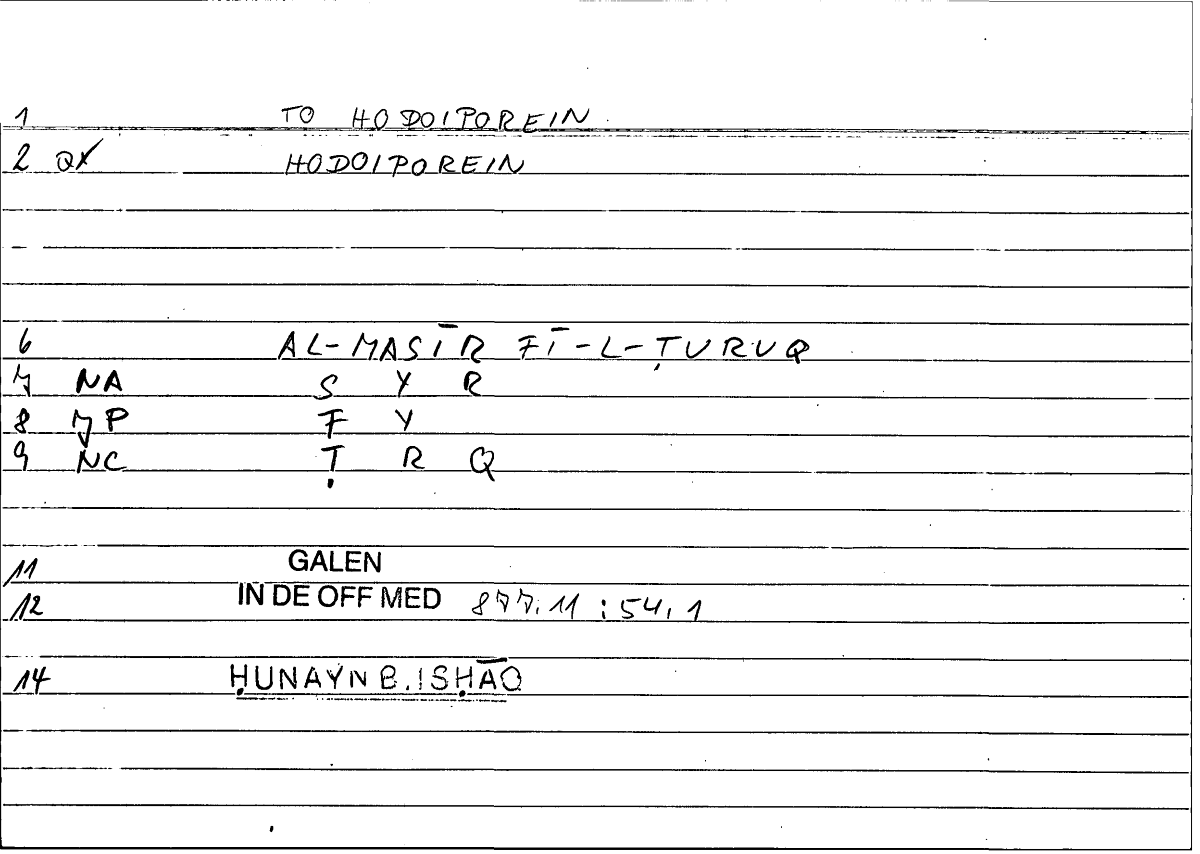 1 TO HODOIPOREIN
2 QX HODOIPOREIN
6 AL-MASĪR FĪ-L-ṬURUQ
7 NA S Y R
8 7P F Y
9 NC Ṭ R Q
11 GALEN
12 IN DE OFF MED 877.11 : 54.1
14 ḤUNAYN B. ISḤĀQ